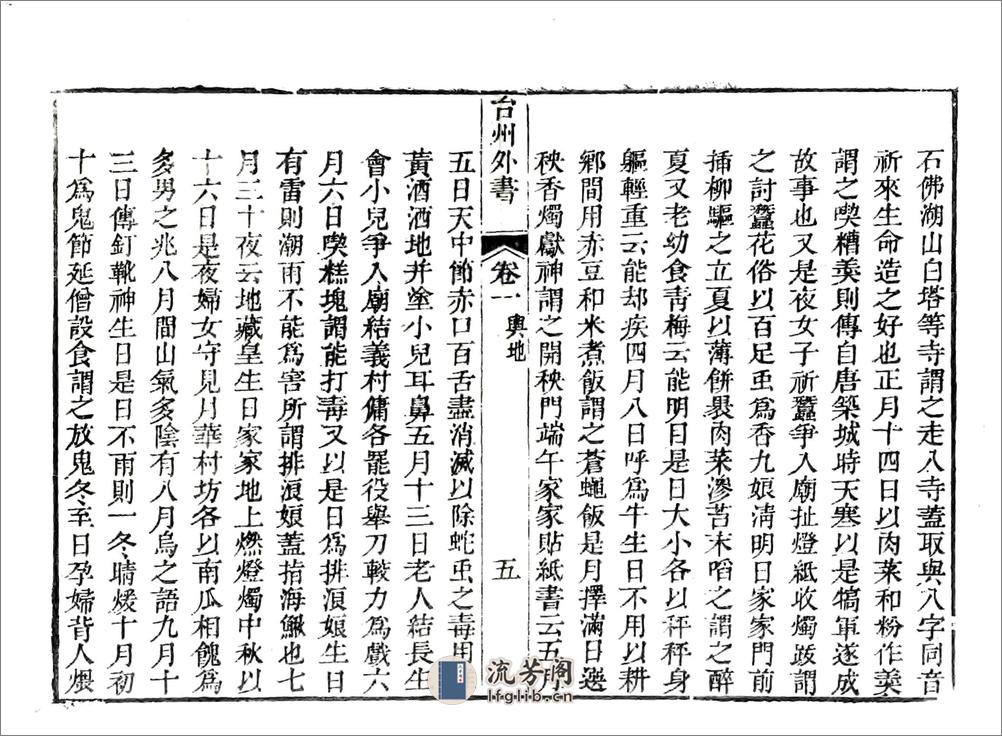 石佛湖山白塔等寺謂之走八寺蓋取與八字同音
祈來生命造之好也正月十四日以肉菜和粉作羹
謂之喫糟羹則傳自唐築城時天寒以是犒軍遂成
故事也又是夜女子祈蠶爭入廟扯燈紙收燭跋謂
之討蠶花俗以百足虫爲香九娘淸明日家家門前
插柳驅之立夏以薄餅裹肉菜滲苦末啗之謂之醉
夏又老幼食靑梅云能明目是日大小各以秤秤身
軀輕重云能却疾四月八日呼爲牛生日不用以耕
鄉間用赤豆和米煮飯謂之蒼蠅飯是月擇滿日選
秧香燭獻神謂之開秧門端午家家貼紙書云五月
台州外書
卷一
輿地
五
五日天中節赤口百舌盡消滅以除蛇虫之毒用
黃酒洒地并塗小兒耳鼻五月十三日老人結長生
會小兒爭入廟結義村傭各罷役舉刀較力爲戲六
月六日喫糕塊謂能打毒又以是日爲排浪娘生日
有雷則潮雨不能爲害所謂排浪娘蓋指海鰍也七
月三十夜云地藏皇生日家家地上燃燈燭中秋以
十六日是夜婦女守見月華村坊各以南瓜相餽爲
多男之兆八月間山氣多陰有八月烏之語九月十
三日傳釘靴神生日是日不雨則一冬晴煖十月初
十爲鬼節延僧設食謂之放鬼冬至日孕婦背人煨
流芳阁
lfglib.cn